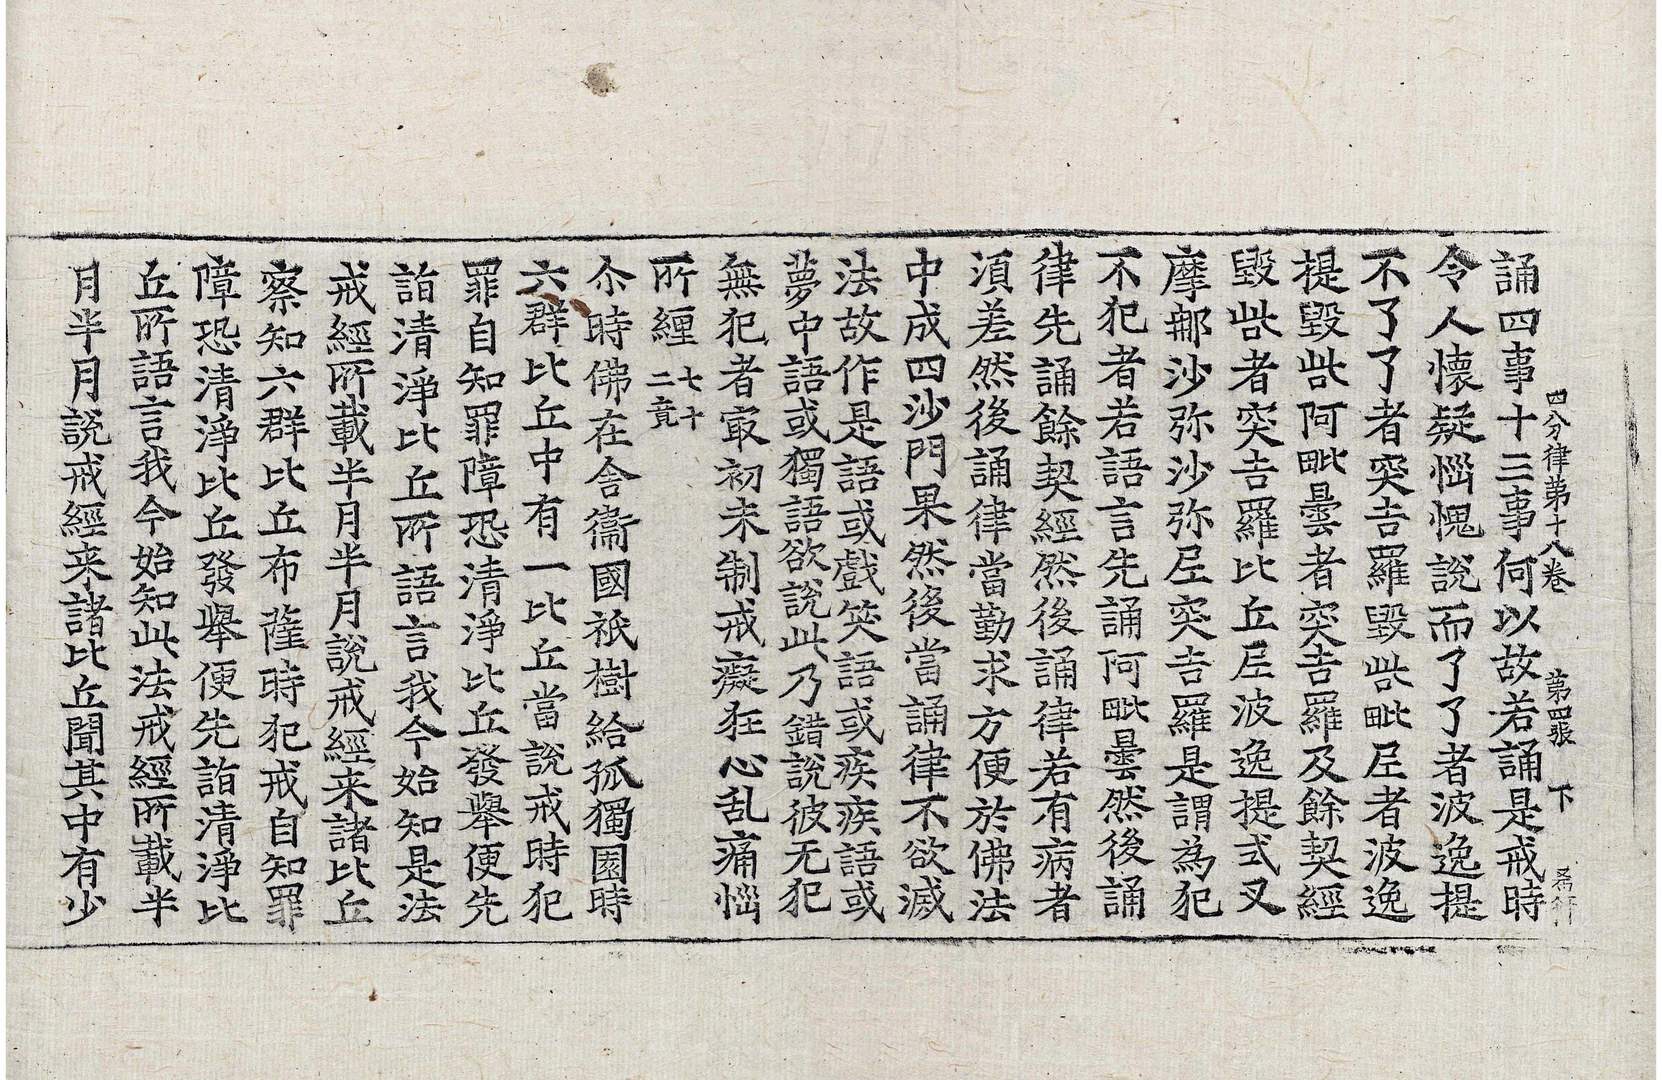 四分律第十八卷　第四張　下
誦四事十三事何以故若誦是戒時
令人懷疑惱愧說而了了者波逸提
不了了者突吉羅毀呰毗尼者波逸
提毀呰阿毗曇者突吉羅及餘契經
毀呰者突吉羅比丘尼波逸提式叉
摩那沙弥沙弥尼突吉羅是謂為犯
不犯者若語言先誦阿毗曇然後誦
律先誦餘契經然後誦律若有病者
湏差然後誦律當勤求方便於佛法
中成四沙門果然後當誦律不欲滅
法故作是語或戲笑語或疾疾語或
夢中語或獨語欲說此乃錯說彼无犯
無犯者㝡初未制戒癡狂心乱痛惱
所纏七十二竟
尒時佛在舍衞國祇樹給孤獨園時
六群比丘中有一比丘當說戒時犯
罪自知罪障恐清淨比丘發舉便先
詣清淨比丘所語言我今始知是法
戒經所載半月半月說戒經来諸比丘
察知六群比丘布薩時犯戒自知罪
障恐清淨比丘發舉便先詣清淨比
丘所語言我今始知此法戒經所載半
月半月說戒經来諸比丘聞其中有少